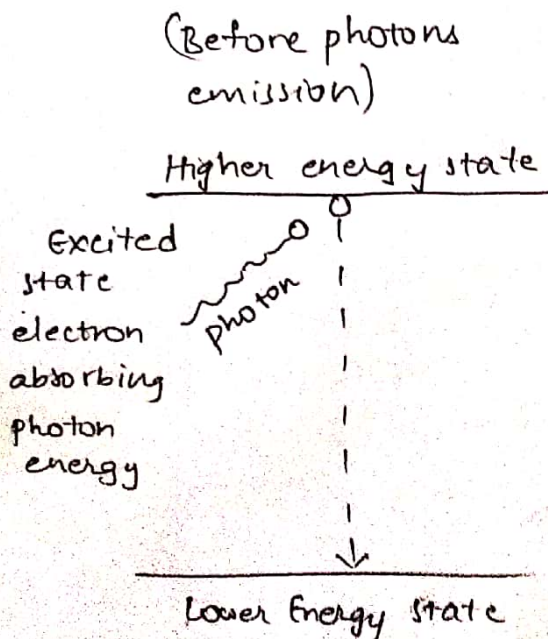 (Before photons
emission)
Higher energy state
Excited
state
electron
absorbing
photon
energy
photon
Lower Energy state